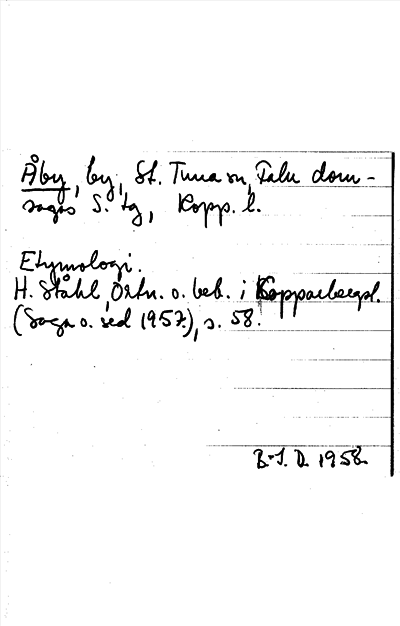 Åby, by, St. Tuna sn, Falu dom-
sagas S. tg, Kopp. l.
Etymologi.
H. Ståhl, Ortn. o. beb. i Kopparbergsl.
(Saga o. sed 1957), s. 58.
B-S. D. 1958.